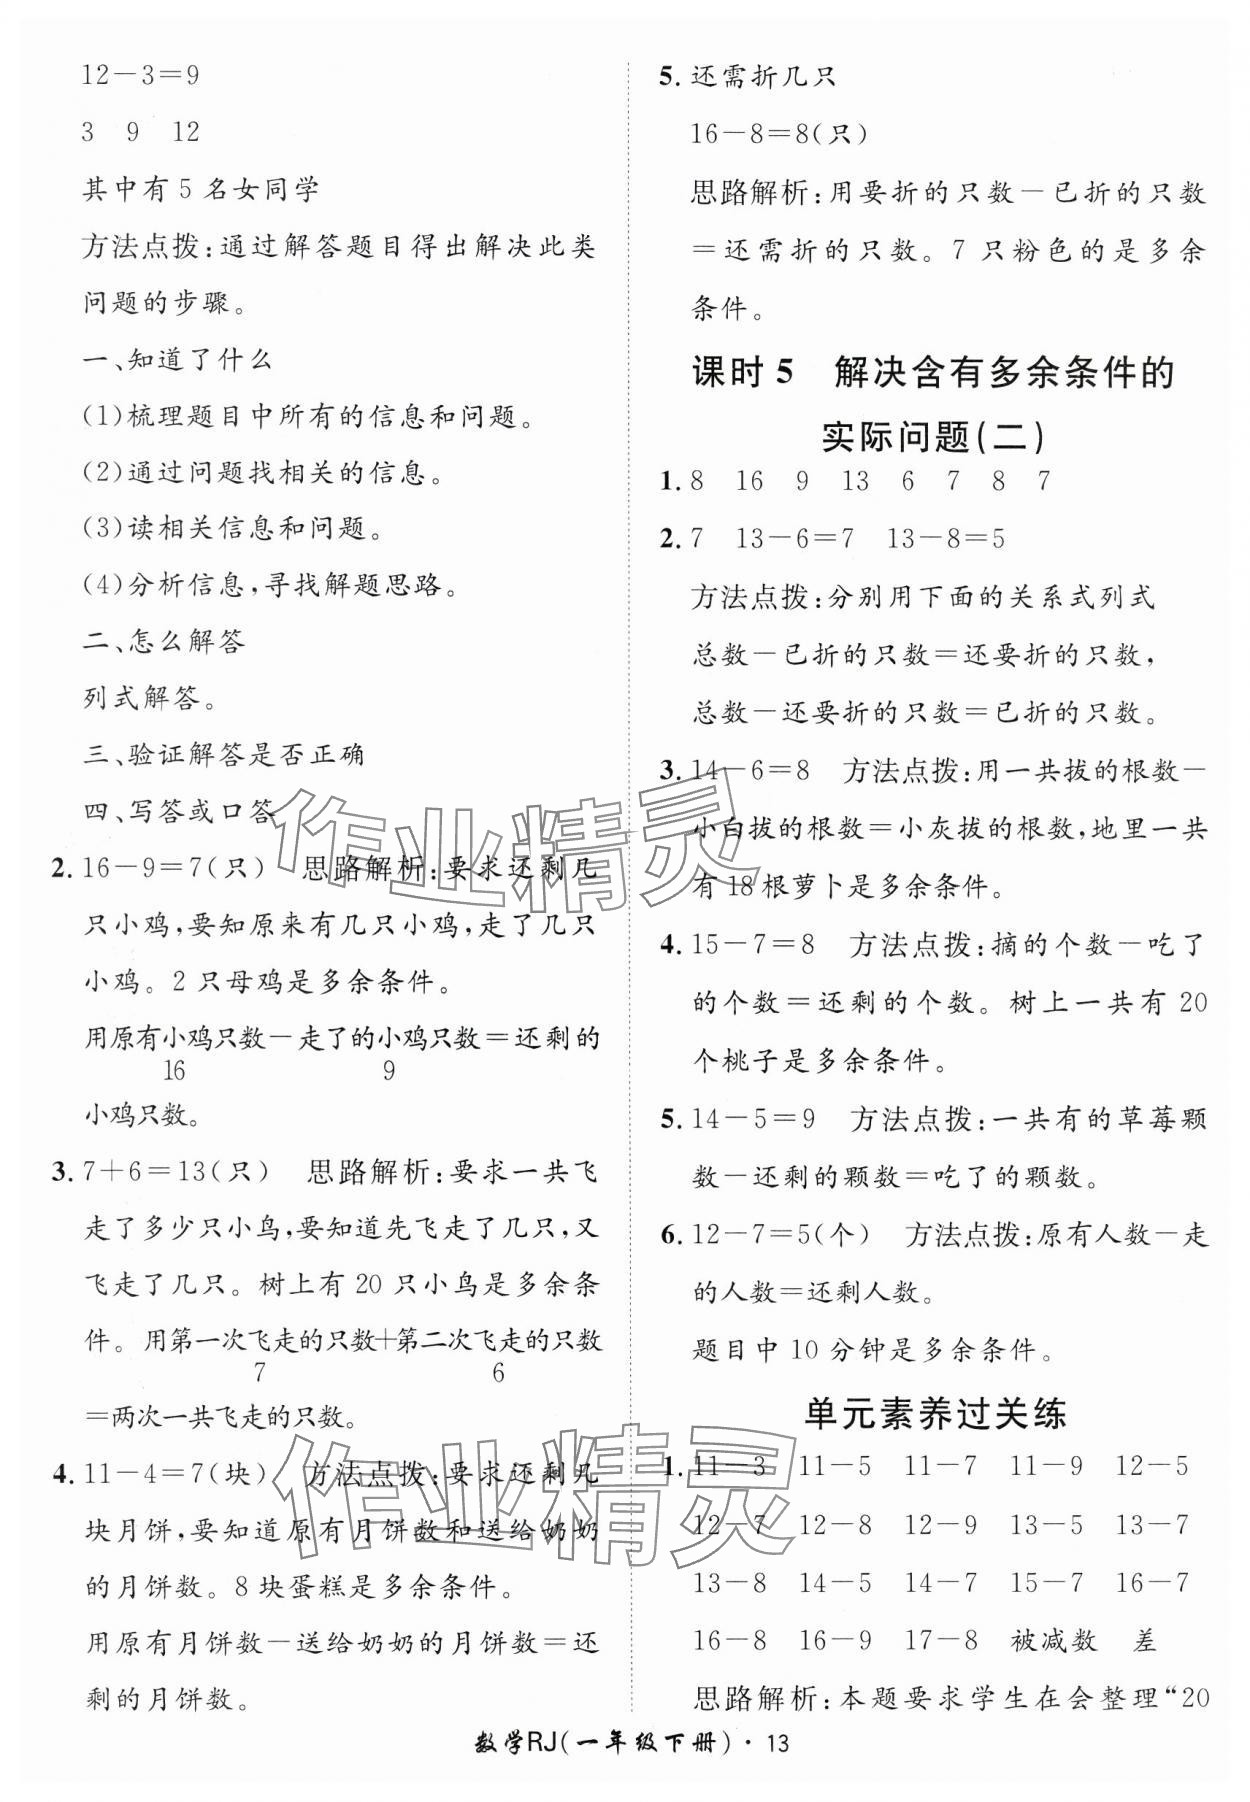 12－3＝9
3　9　12
其中有 5 名女同学
方法点拨:通过解答题目得出解决此类
问题的步骤。
一、知道了什么
(1)梳理题目中所有的信息和问题。
(2)通过问题找相关的信息。
(3)读相关信息和问题。
(4)分析信息,寻找解题思路。
二、怎么解答
列式解答。
三、验证解答是否正确
四、写答或口答
2. 16－9＝7(只)　思路解析:要求还剩几
只小鸡,要知原来有几只小鸡,走了几只
小鸡。2 只母鸡是多余条件。
用原有小鸡只数－走了的小鸡只数＝还剩的
16　9
小鸡只数。
3. 7＋6＝13(只)　思路解析:要求一共飞
走了多少只小鸟,要知道先飞走了几只,又
飞走了几只。树上有 20 只小鸟是多余条
件。用第一次飞走的只数＋第二次飞走的只数
7　6
＝两次一共飞走的只数。
4. 11－4＝7(块)　方法点拨:要求还剩几
块月饼,要知道原有月饼数和送给奶奶
的月饼数。8 块蛋糕是多余条件。
用原有月饼数－送给奶奶的月饼数＝还
剩的月饼数。
5. 还需折几只
16－8＝8(只)
思路解析:用要折的只数－已折的只数
＝还需折的只数。7 只粉色的是多余
条件。
课时 5　解决含有多余条件的
实际问题(二)
1. 8　16　9　13　6　7　8　7
2. 7　13－6＝7　13－8＝5
方法点拨:分别用下面的关系式列式
总数－已折的只数＝还要折的只数,
总数－还要折的只数＝已折的只数。
3. 14－6＝8　方法点拨:用一共拔的根数－
小白拔的根数＝小灰拔的根数,地里一共
有 18 根萝卜是多余条件。
4. 15－7＝8　方法点拨:摘的个数－吃了
的个数＝还剩的个数。树上一共有 20
个桃子是多余条件。
5. 14－5＝9　方法点拨:一共有的草莓颗
数－还剩的颗数＝吃了的颗数。
6. 12－7＝5(个)　方法点拨:原有人数－走
的人数＝还剩人数。
题目中 10 分钟是多余条件。
单元素养过关练
1. 11－3　11－5　11－7　11－9　12－5
12－7　12－8　12－9　13－5　13－7
13－8　14－5　14－7　15－7　16－7
16－8　16－9　17－8　被减数　差
思路解析:本题要求学生在会整理“20
数学RJ(一年级下册)·13
作业精灵
作业精灵